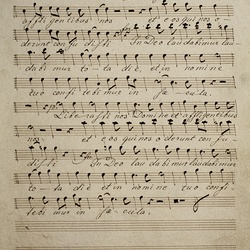 affligentibus nos et eos qui nos o
derunt confudisti In Deo laudabimur lau
dabimur tota die, et in nomine
tuo confitebimur in sæcula.
Liberasti nos Domine et affligentibus
nos et eos qui nos oderunt confu-
disti In Deo laudabimur laudabimur
to- ta die et in nomine tuo confi-
tebimur in sæcula.